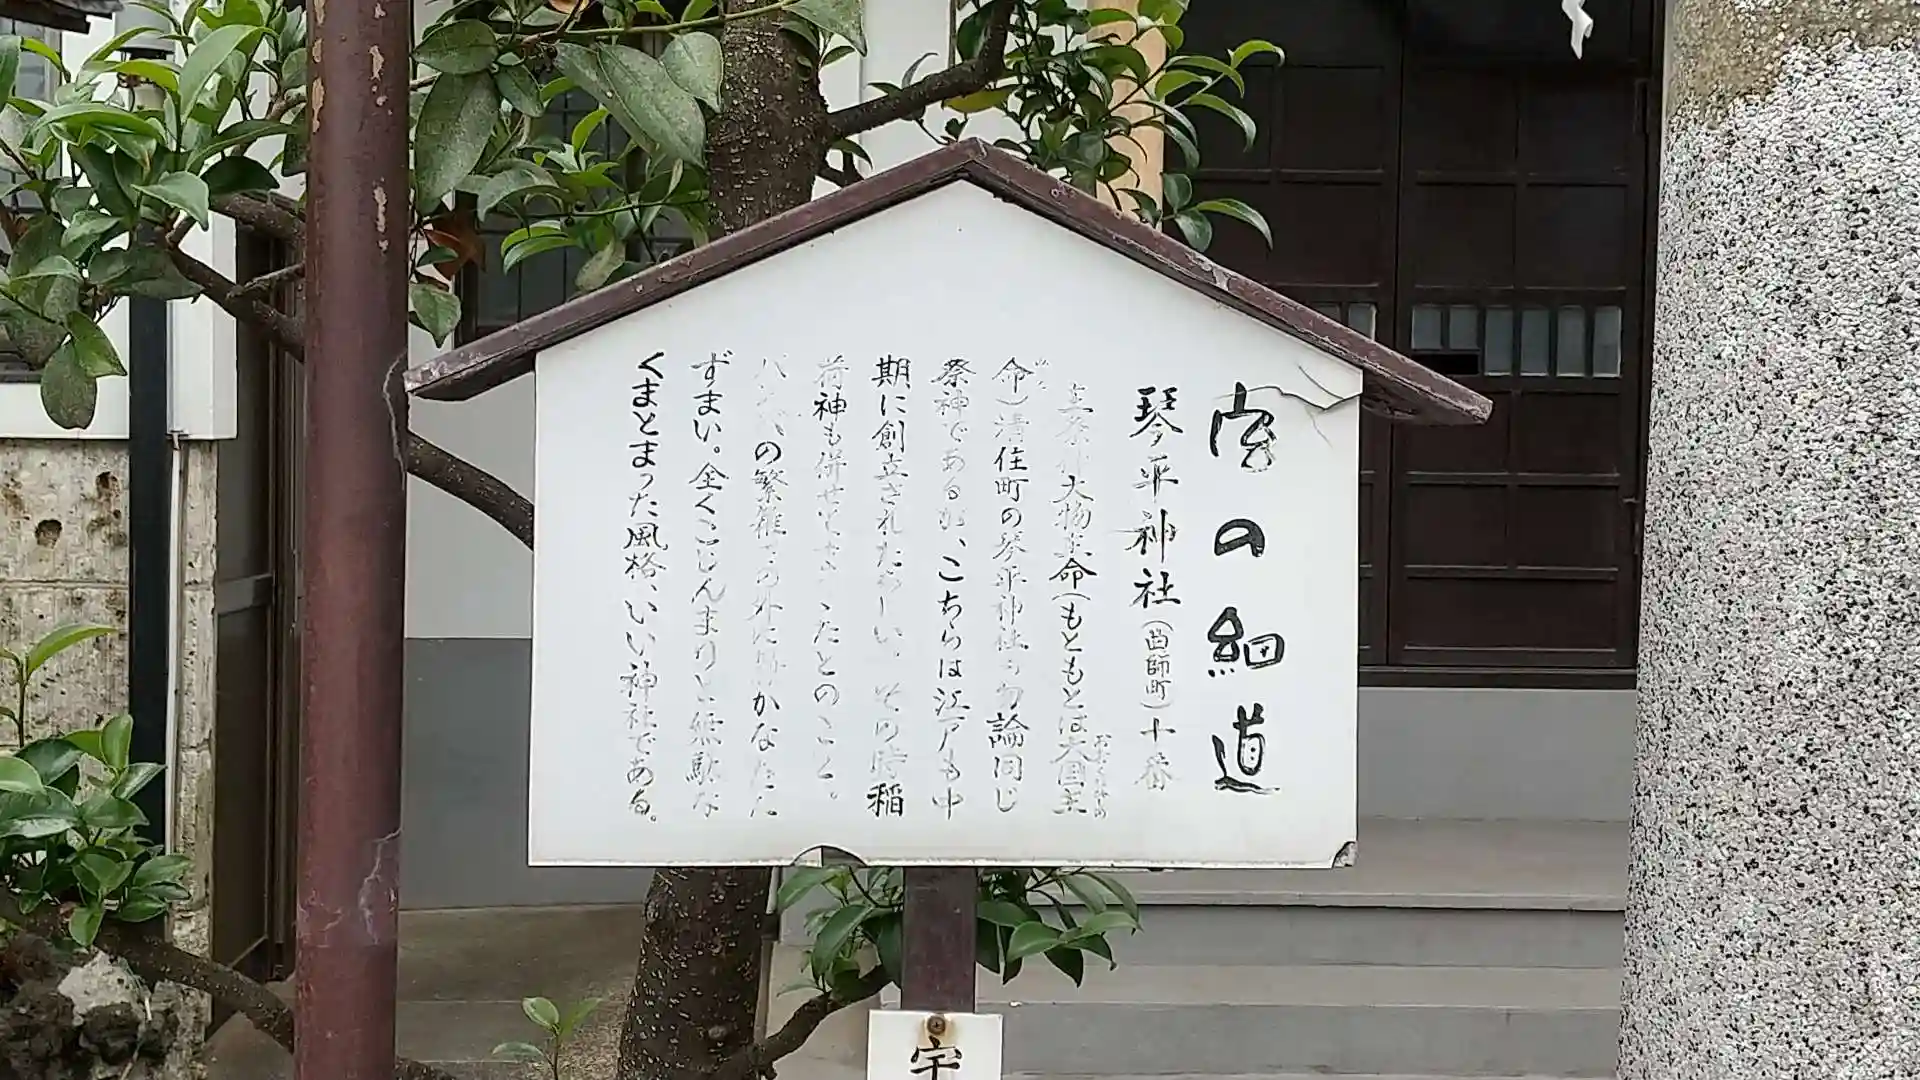 宮の細道
琴平神社（歯師町）十番
主祭神大物主命（もともとは大国主
おおくにぬしの
みこと
命）清住町の琴平神社も勿論同じ
祭神であるが、こちらは江戸も中
期に創立されたらしい。その時稲
荷神も併せてまつったとのこと。
の繁雑さの外に静かなたた
ずまい。全くこじんまりと無駄な
くまとまった風格、いい神社である。
宇